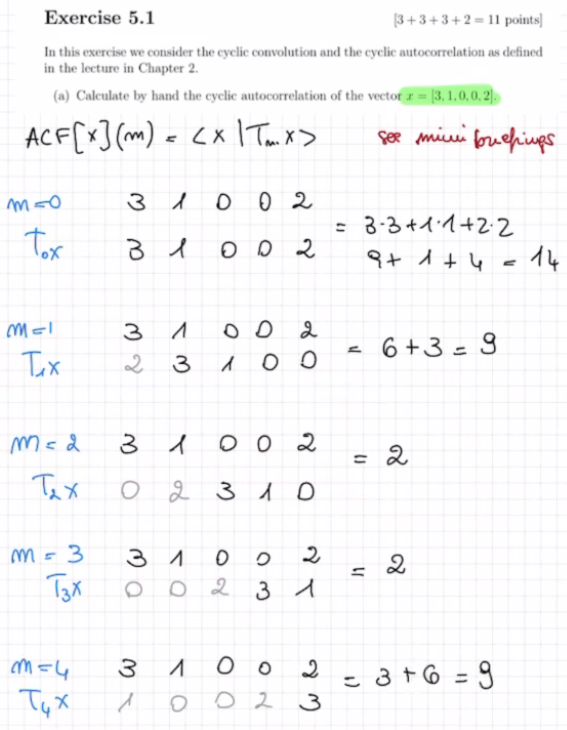 Exercise 5.1 [3 + 3 + 3 + 2 = 11 points]
In this exercise we consider the cyclic convolution and the cyclic autocorrelation as defined
in the lecture in Chapter 2.
(a) Calculate by hand the cyclic autocorrelation of the vector x = [3, 1, 0, 0, 2].
ACF[x](m) = <x|Tₘx> see mini briefings
m=0 3 1 0 0 2
= 3·3+1·1+2·2
T₀x 3 1 0 0 2
9+ 1 + 4 = 14
m=1 3 1 0 0 2
= 6+3 = 9
T₁x 2 3 1 0 0
m=2 3 1 0 0 2
= 2
T₂x 0 2 3 1 0
m=3 3 1 0 0 2
= 2
T₃x 0 0 2 3 1
m=4 3 1 0 0 2
= 3+6 = 9
T₄x 1 0 0 2 3